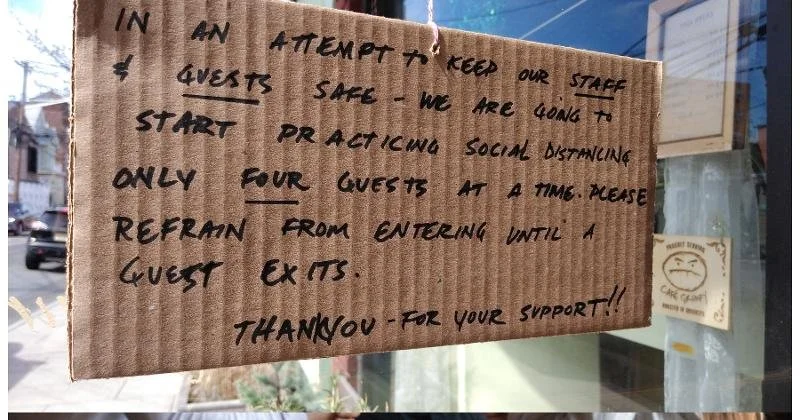 IN AN ATTEMPT to KEEP OUR STAFF
& GUESTS SAFE - WE ARE GOING to
START PRACTICING SOCIAL DISTANCING
ONLY FOUR GUESTS AT A TIME. PLEASE
REFRAIN FROM ENTERING UNTIL A
GUEST EXITS.
THANKYOU - FOR YOUR SUPPORT!!
PROUDLY SERVING
CAFE GRUMPY
ROASTED IN BROOKLYN